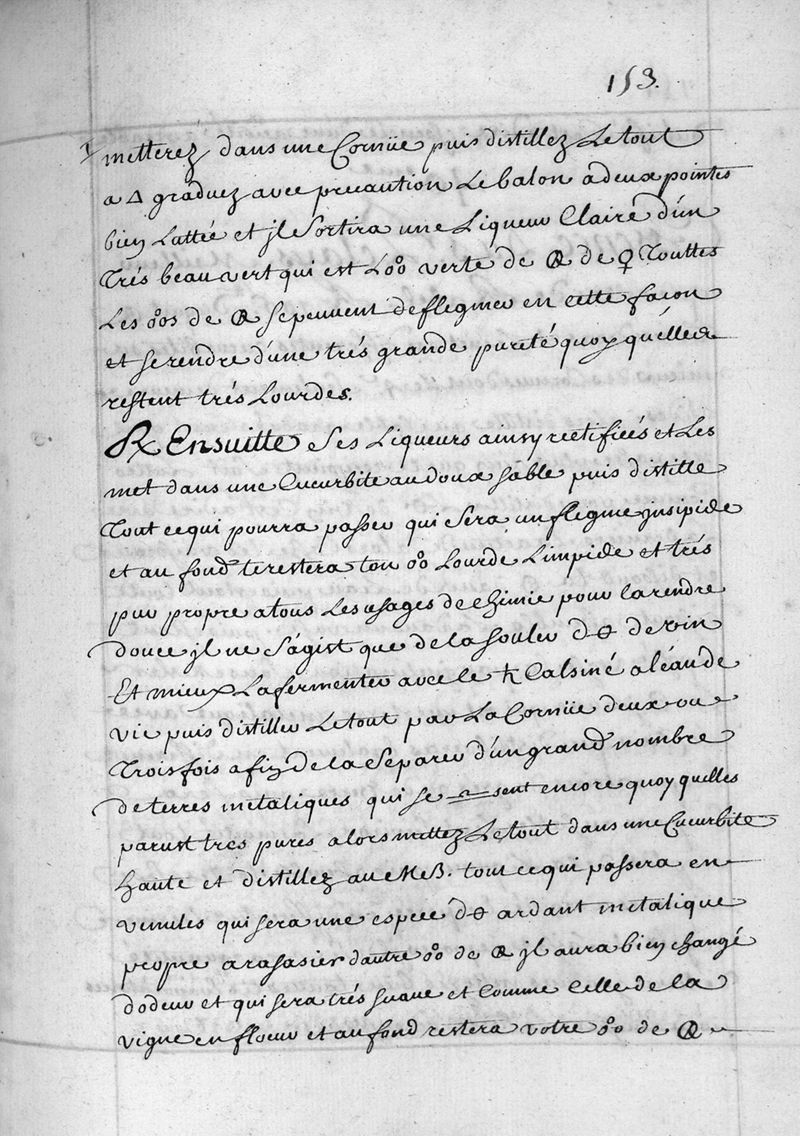 153.
metterez dans une Cornüe puis distillez Le tout
a 🜂 graduez avec precaution Le balon a deux pointes
bien Lattée et jl Sortira une Liqueur Claire d'un
Trés beau vert qui est L'o°o verte de 🜖 de ♀ Touttes
Les o°os de 🜖 se peuvent deflegmer en cette façon
et se rendre d'une trés grande pureté quoy qu'élles
restent trés Lourdes.
℞ Ensuitte Ses Liqueurs ainsy rectifiées et Les
met dans une Cucurbite au doux sable puis distille
Tout ce qui pourra passer qui Sera un flegme jnsipide
et au fond te restera ton o°o Lourde Limpide et trés
pur propre a tous Les usages de chimie pour la rendre
douce jl ne S'ágist que de la souler d' de vin
Et mieux La fermenter avec le ♄ Calsiné a léau de
vie puis distiller Le tout par La Cornüe deux ou
Trois fois afin de la Separer d'un grand nombre
de terres metaliques qui se sent encore quoy quelles
parust tres pures alors mettez Le tout dans une Cucurbite
haute et distillez au M B. tout ce qui passera en
venules qui sera une espece d' ardant metalique
propre a rasasier dautre o°o de 🜖 jl aura bien changé
dodeur et qui sera trés suave et Comme Celle de la
vigne en floeur et au fond restera votre o°o de 🜖